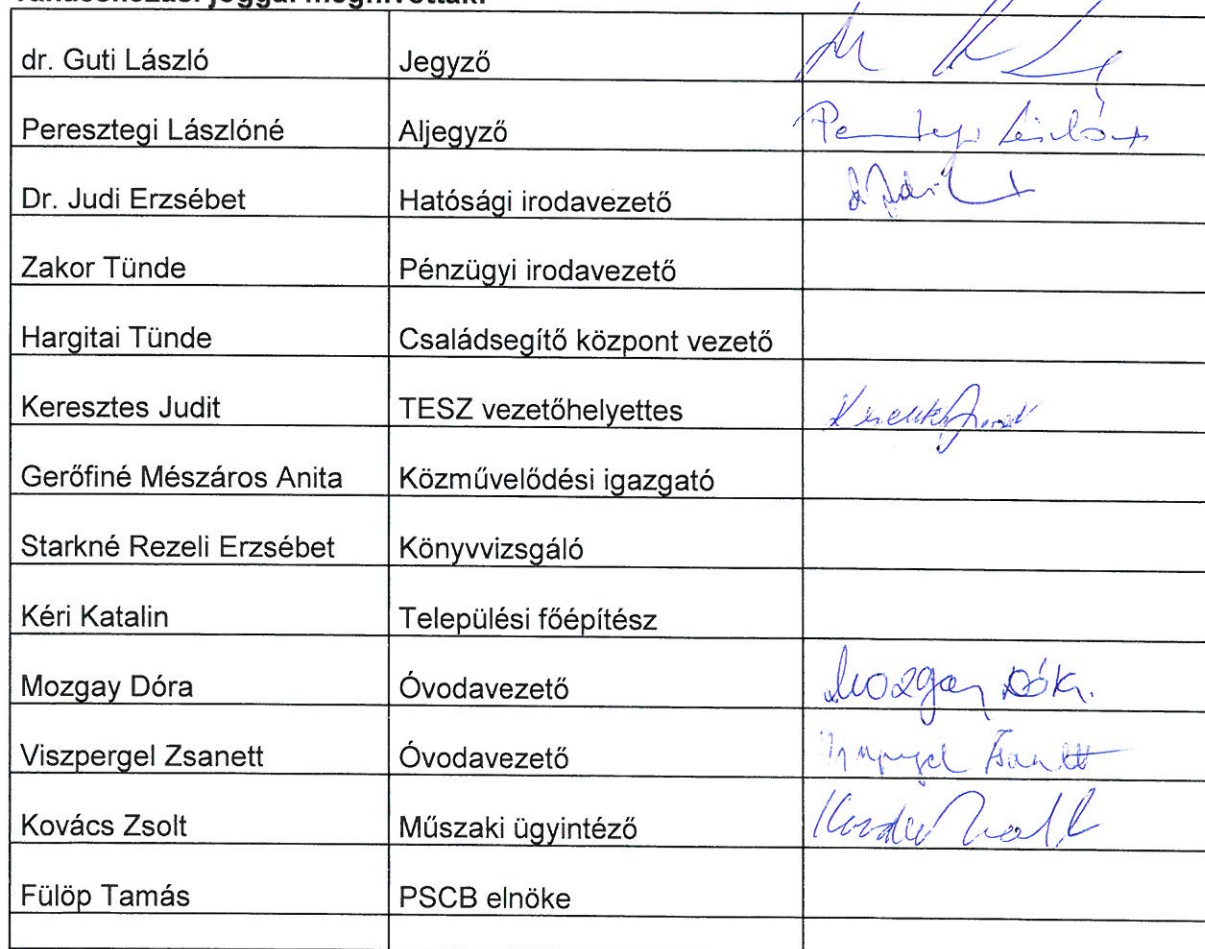 Tanácskozási joggal meghívottak:
dr. Guti László Jegyző
Peresztegi Lászlóné Aljegyző
Dr. Judi Erzsébet Hatósági irodavezető
Zakor Tünde Pénzügyi irodavezető
Hargitai Tünde Családsegítő központ vezető
Keresztes Judit TESZ vezetőhelyettes
Gerőfiné Mészáros Anita Közművelődési igazgató
Starkné Rezeli Erzsébet Könyvvizsgáló
Kéri Katalin Települési főépítész
Mozgay Dóra Óvodavezető Mozgay Dóra
Viszpergel Zsanett Óvodavezető Zsanett
Kovács Zsolt Műszaki ügyintéző
Fülöp Tamás PSCB elnöke